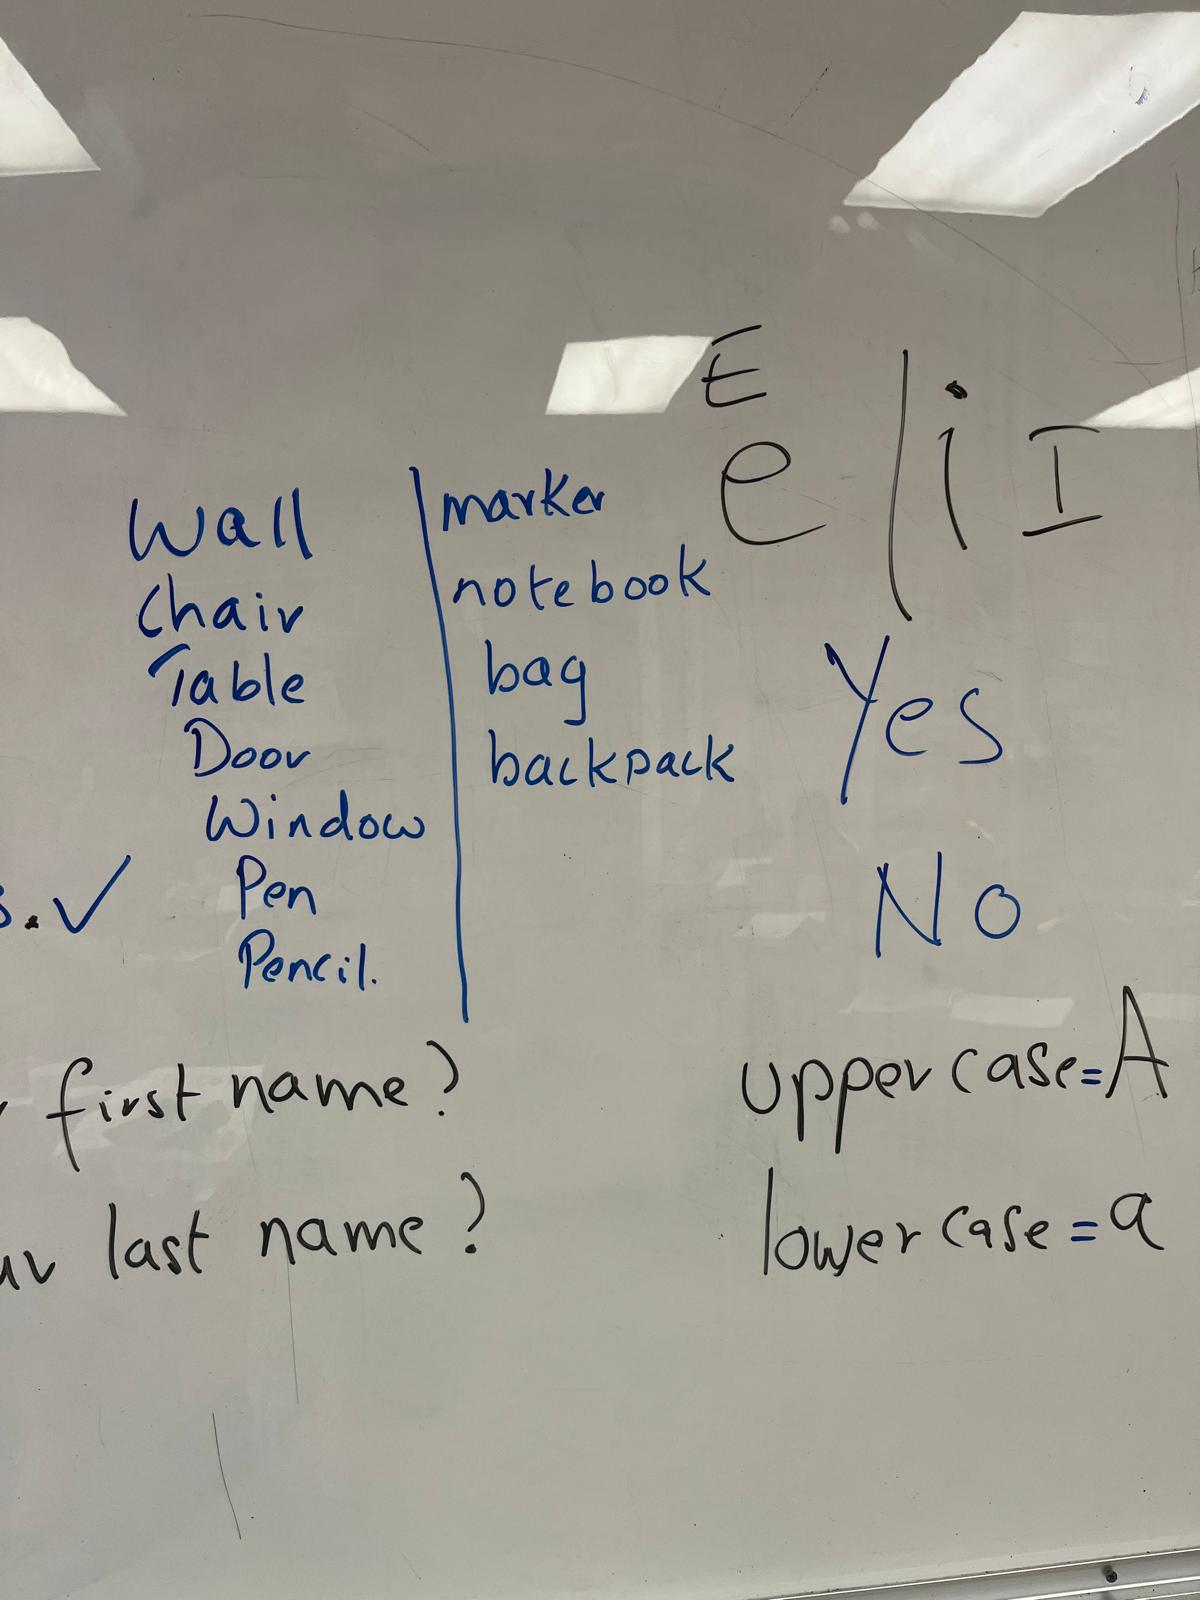 E
e l i I
Wall
Chair
Table
Door
Window
Pen
Pencil.
marker
notebook
bag
backpack
Yes
No
first name?
last name?
uppercase=A
lowercase=a